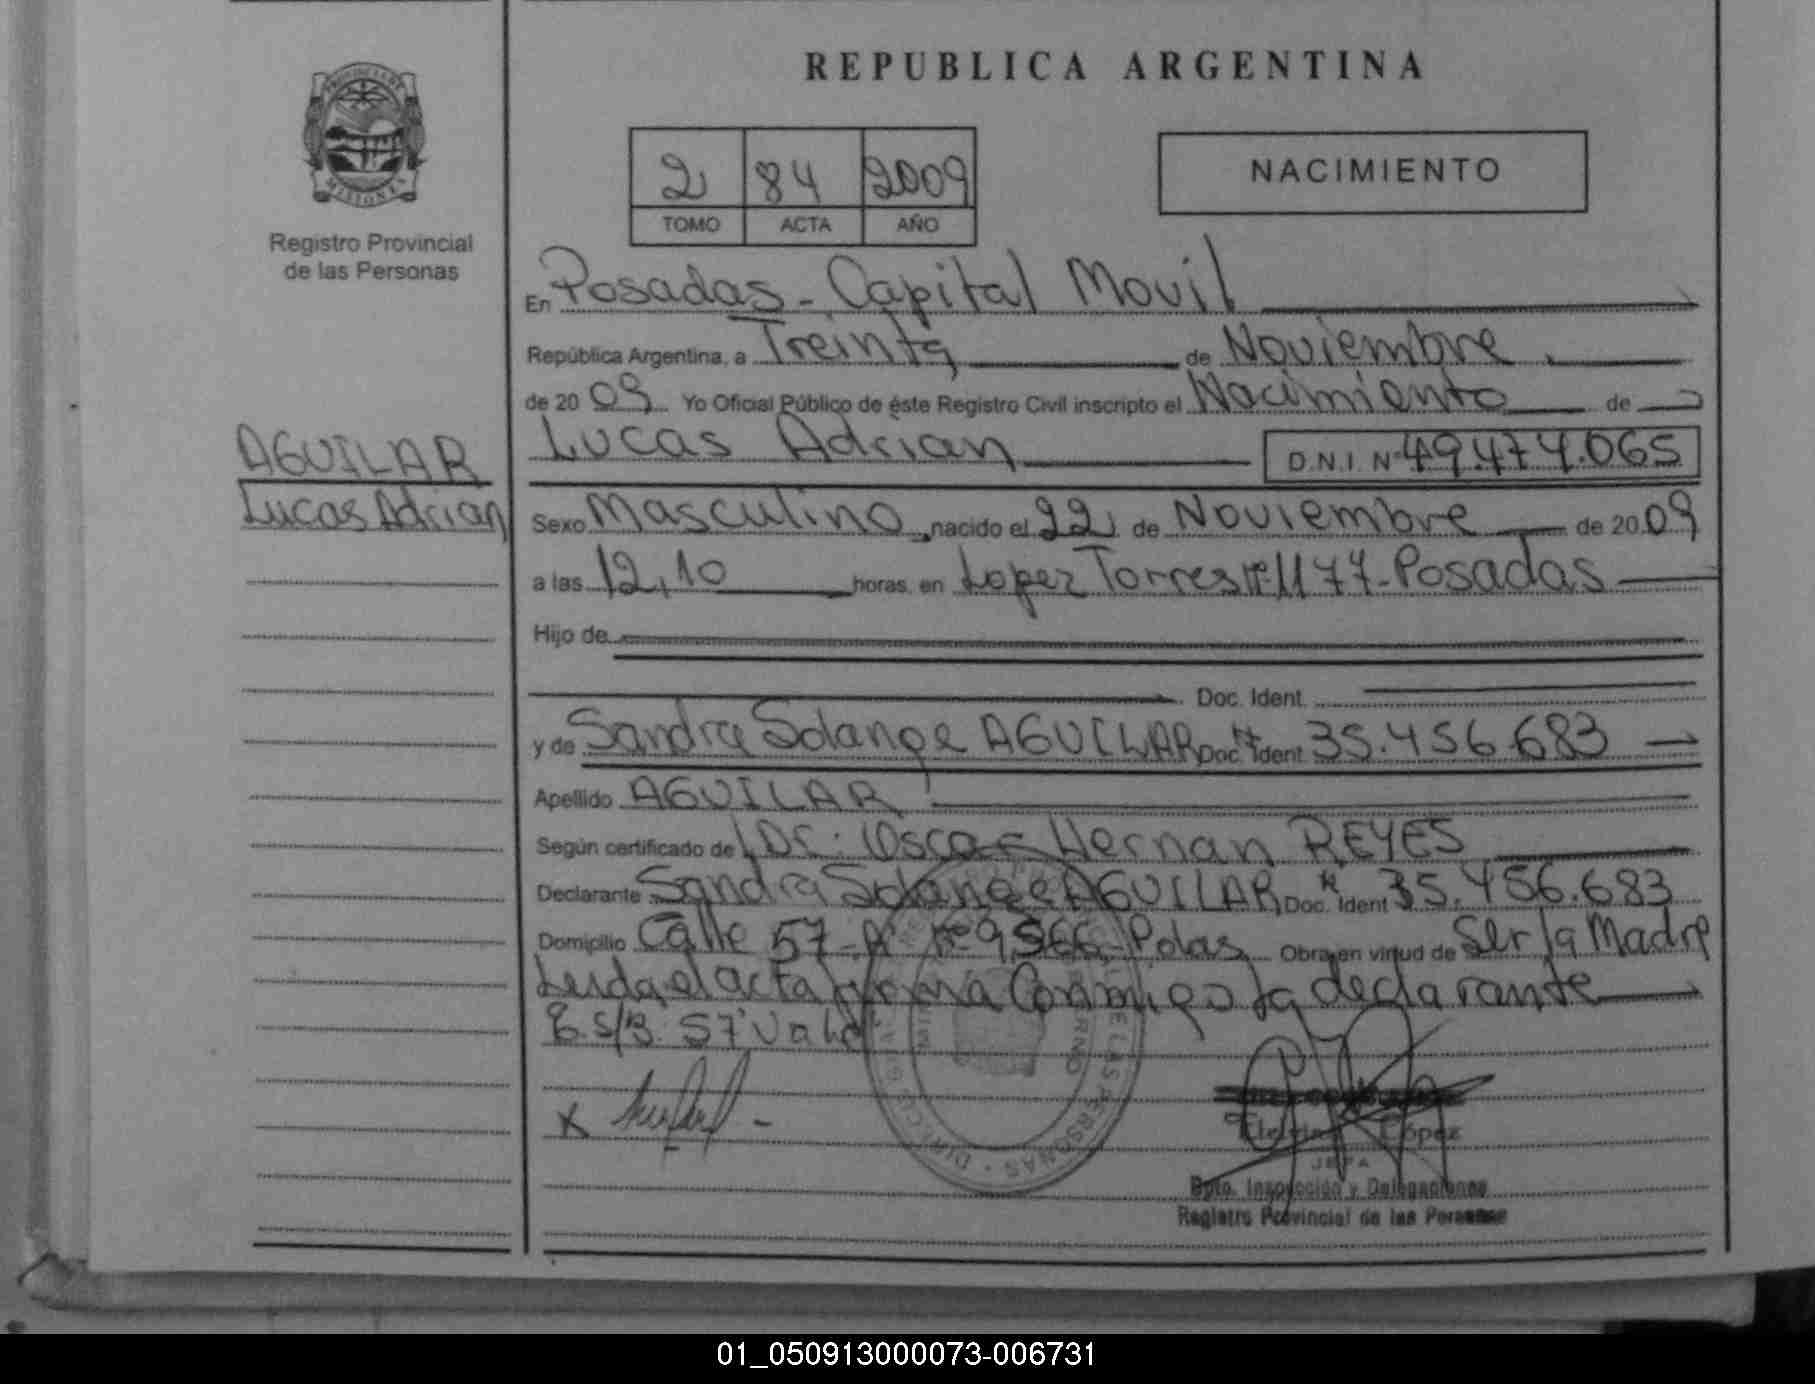 REPUBLICA ARGENTINA
PROVINCIA DE
MISIONES
Registro Provincial
de las Personas
2 84 2009
TOMO ACTA AÑO
NACIMIENTO
En Posadas - Capital Movil
República Argentina, a Treinta de Noviembre
de 20 09 Yo Oficial Público de éste Registro Civil inscripto el Nacimiento de
AGUILAR
Lucas Adrian
Lucas Adrian D.N.I. Nº 49.474.065
Sexo Masculino, nacido el 22 de Noviembre de 20 09
a las 12,10 horas, en Lopez Torres Nº 1177 - Posadas
Hijo de
Doc. Ident.
y de Sandra Solange AGUILAR Doc. Ident. 35.456.683
Apellido AGUILAR
Según certificado de Dr. Oscar Hernan REYES
Declarante Sandra Solange AGUILAR Doc. Ident 35.456.683
Domicilio Calle 57-A Nº 9566 - Pdas Obra en virtud de Ser la Madre
Leida el acta firma Conmigo la declarante
E.S/B. 57 Vale
X
López
JEFA
Dpto. Inspección y Delegaciones
Registro Provincial de las Personas
01_050913000073-006731